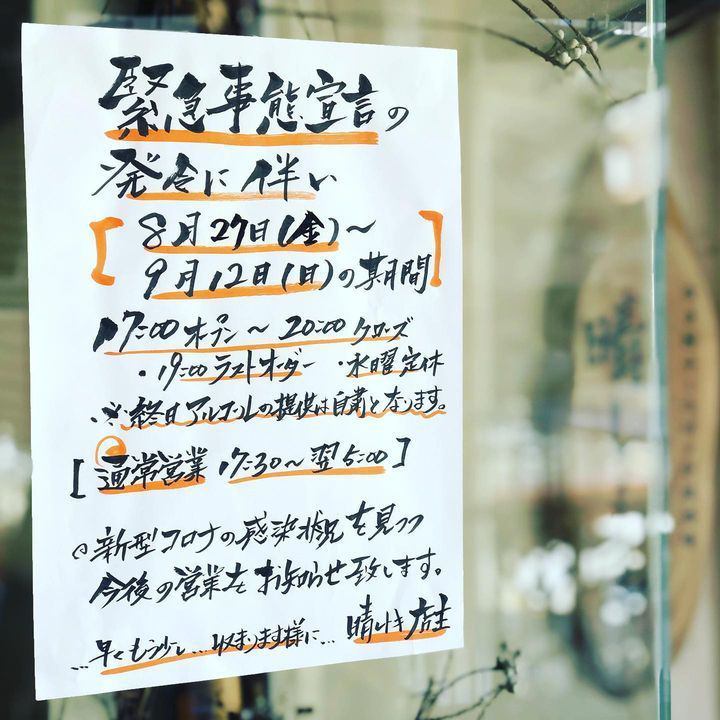 緊急事態宣言の
発令に伴い
[ 8月27日(金)〜
9月12日(日)の期間 ]
17:00 オープン〜20:00 クローズ
・19:00 ラストオーダー ・水曜定休
・※終日アルコールの提供は自粛となります。
[ 通常営業 17:30〜翌5:00 ]
◎新型コロナの感染状況を見つつ
今後の営業をお知らせ致します。
…早くもう少し…収まります様に… 晴レトキ 店主